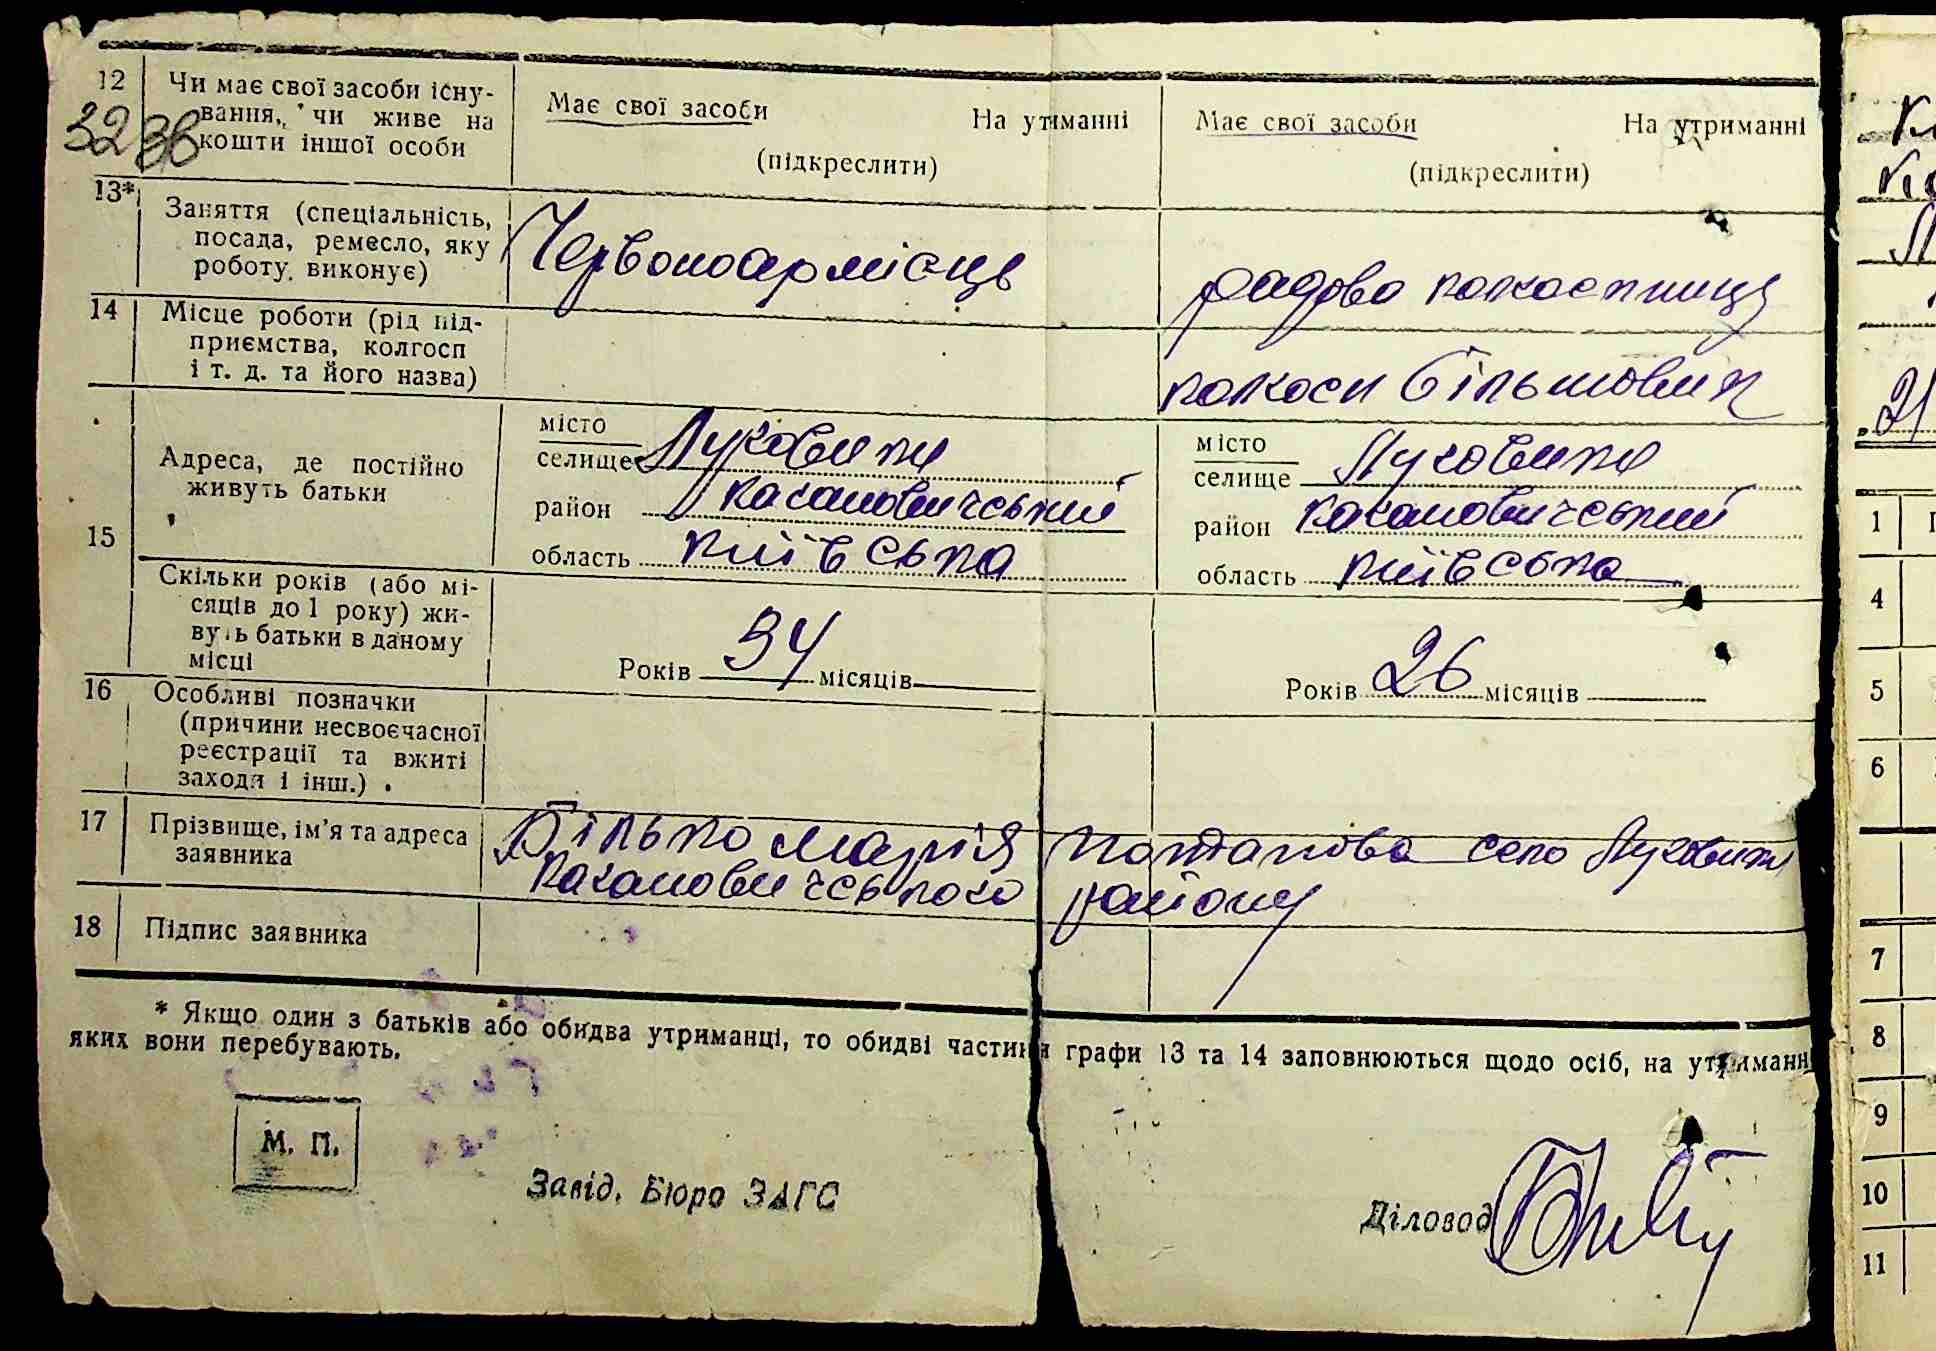 12 Чи має свої засоби існу-
вання, чи живе на
кошти іншої особи
Має свої засоби На утиманні
(підкреслити)
Має свої засоби На утриманні
(підкреслити)
3238
13* Заняття (спеціальність,
посада, ремесло, яку
роботу виконує)
Червоноармієць
радова колгоспниця
14 Місце роботи (рід під-
приємства, колгосп
і т. д. та його назва)
колгосп Більшовик
15 Адреса, де постійно
живуть батьки
місто
селище Луковиця
район Кагановичський
область Київська
місто
селище Луковиця
район Кагановичський
область Київська
Скільки років (або мі-
сяців до 1 року) жи-
вуть батьки в даному
місці
Років 34 місяців
Років 26 місяців
16 Особливі позначки
(причини несвоєчасної
реєстрації та вжиті
заходи і інш.)
17 Прізвище, ім'я та адреса
заявника
Білько Марія село Луковиця
Кагановичського району
18 Підпис заявника
* Якщо один з батьків або обидва утриманці, то обидві частини графи 13 та 14 заповнюються щодо осіб, на утриманні
яких вони перебувають.
М. П.
Завід. Бюро ЗАГС
Діловод
1
4
5
6
7
8
9
10
11
21